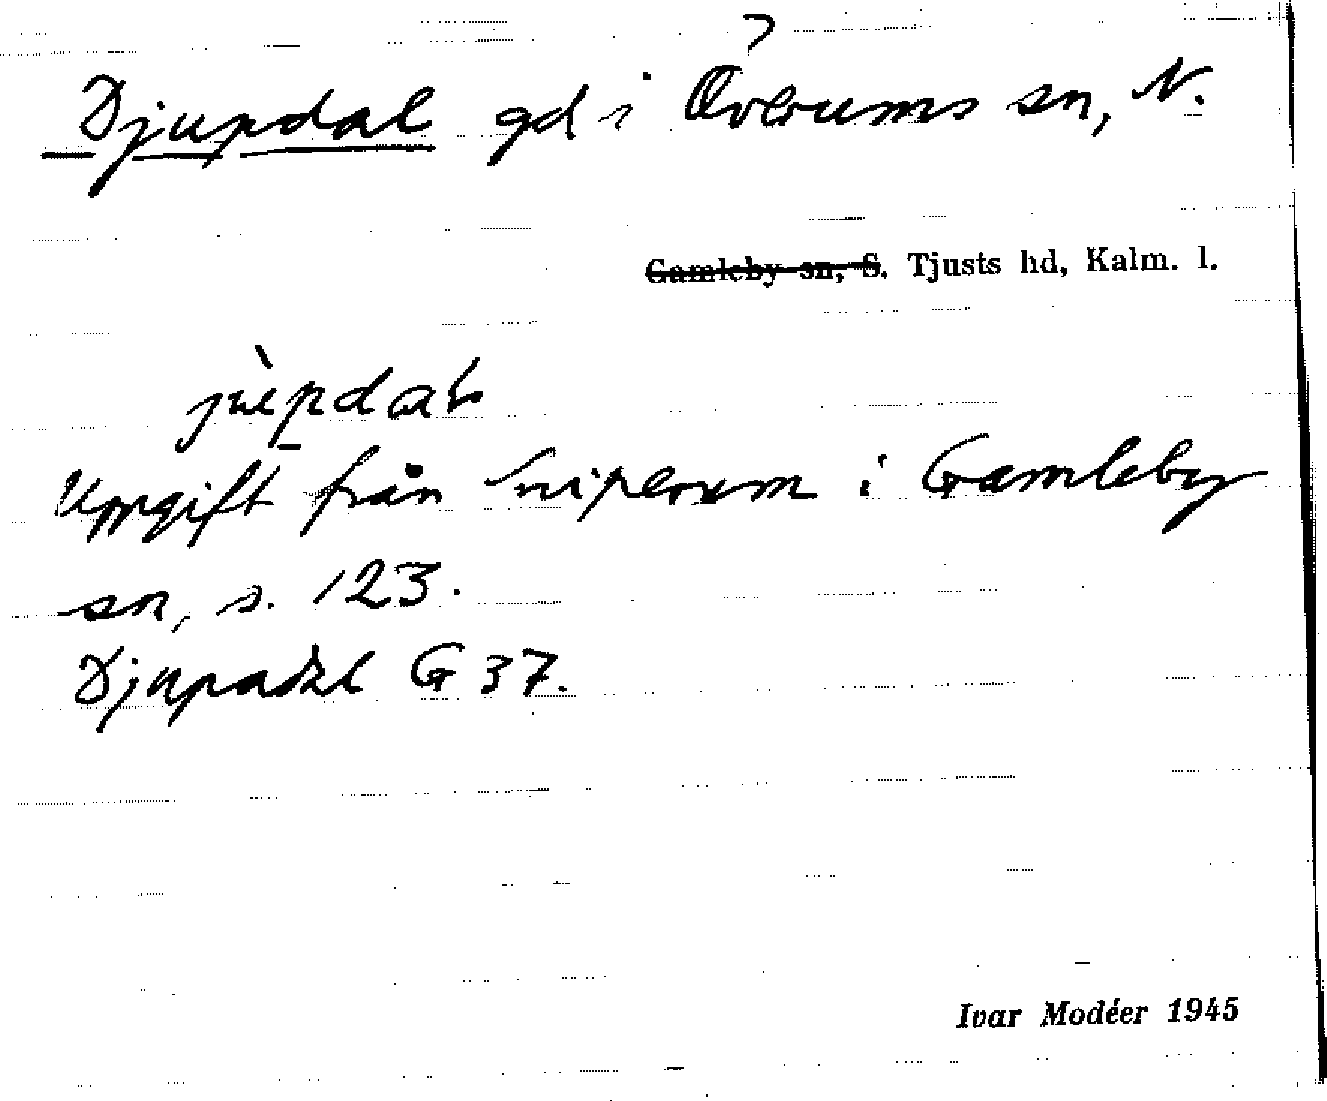 ?
Djupdal gd i Överums sn, N.
Gamleby sn, S. Tjusts hd, Kalm. l.
Uppgift från i Gamleby
sn, s. 123.
G 37.
Ivar Modéer 1945